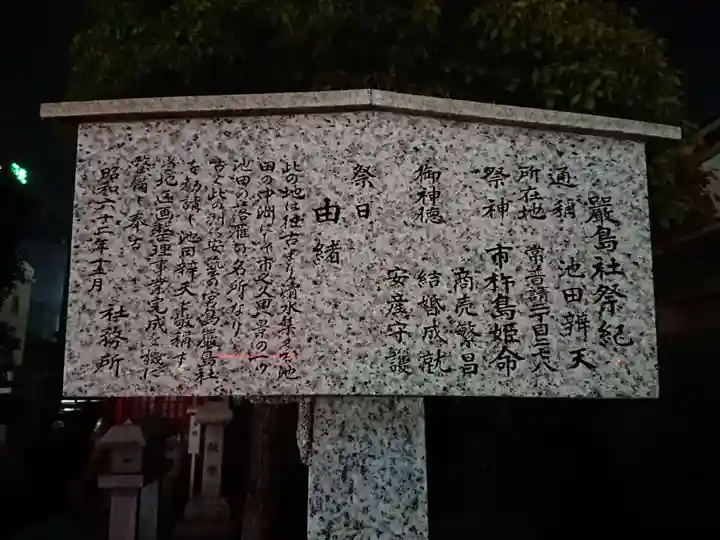 嚴島社祭紀
通稱 池田辨天
所在地 常普請一丁目二八
祭神 市杵島姫命
御神徳 商売繁昌
結婚成就
安産守護
祭日
由緒
此の地は往古より清水集まる池
田の中洲にて市文
池田の落雁の名所なり
古くより此の地に安芸の宮島厳島社
を勧請し池田辨天と敬称す
当地区画整理事業完成を機に
整備し奉る
昭和六十二年十五月 社務所